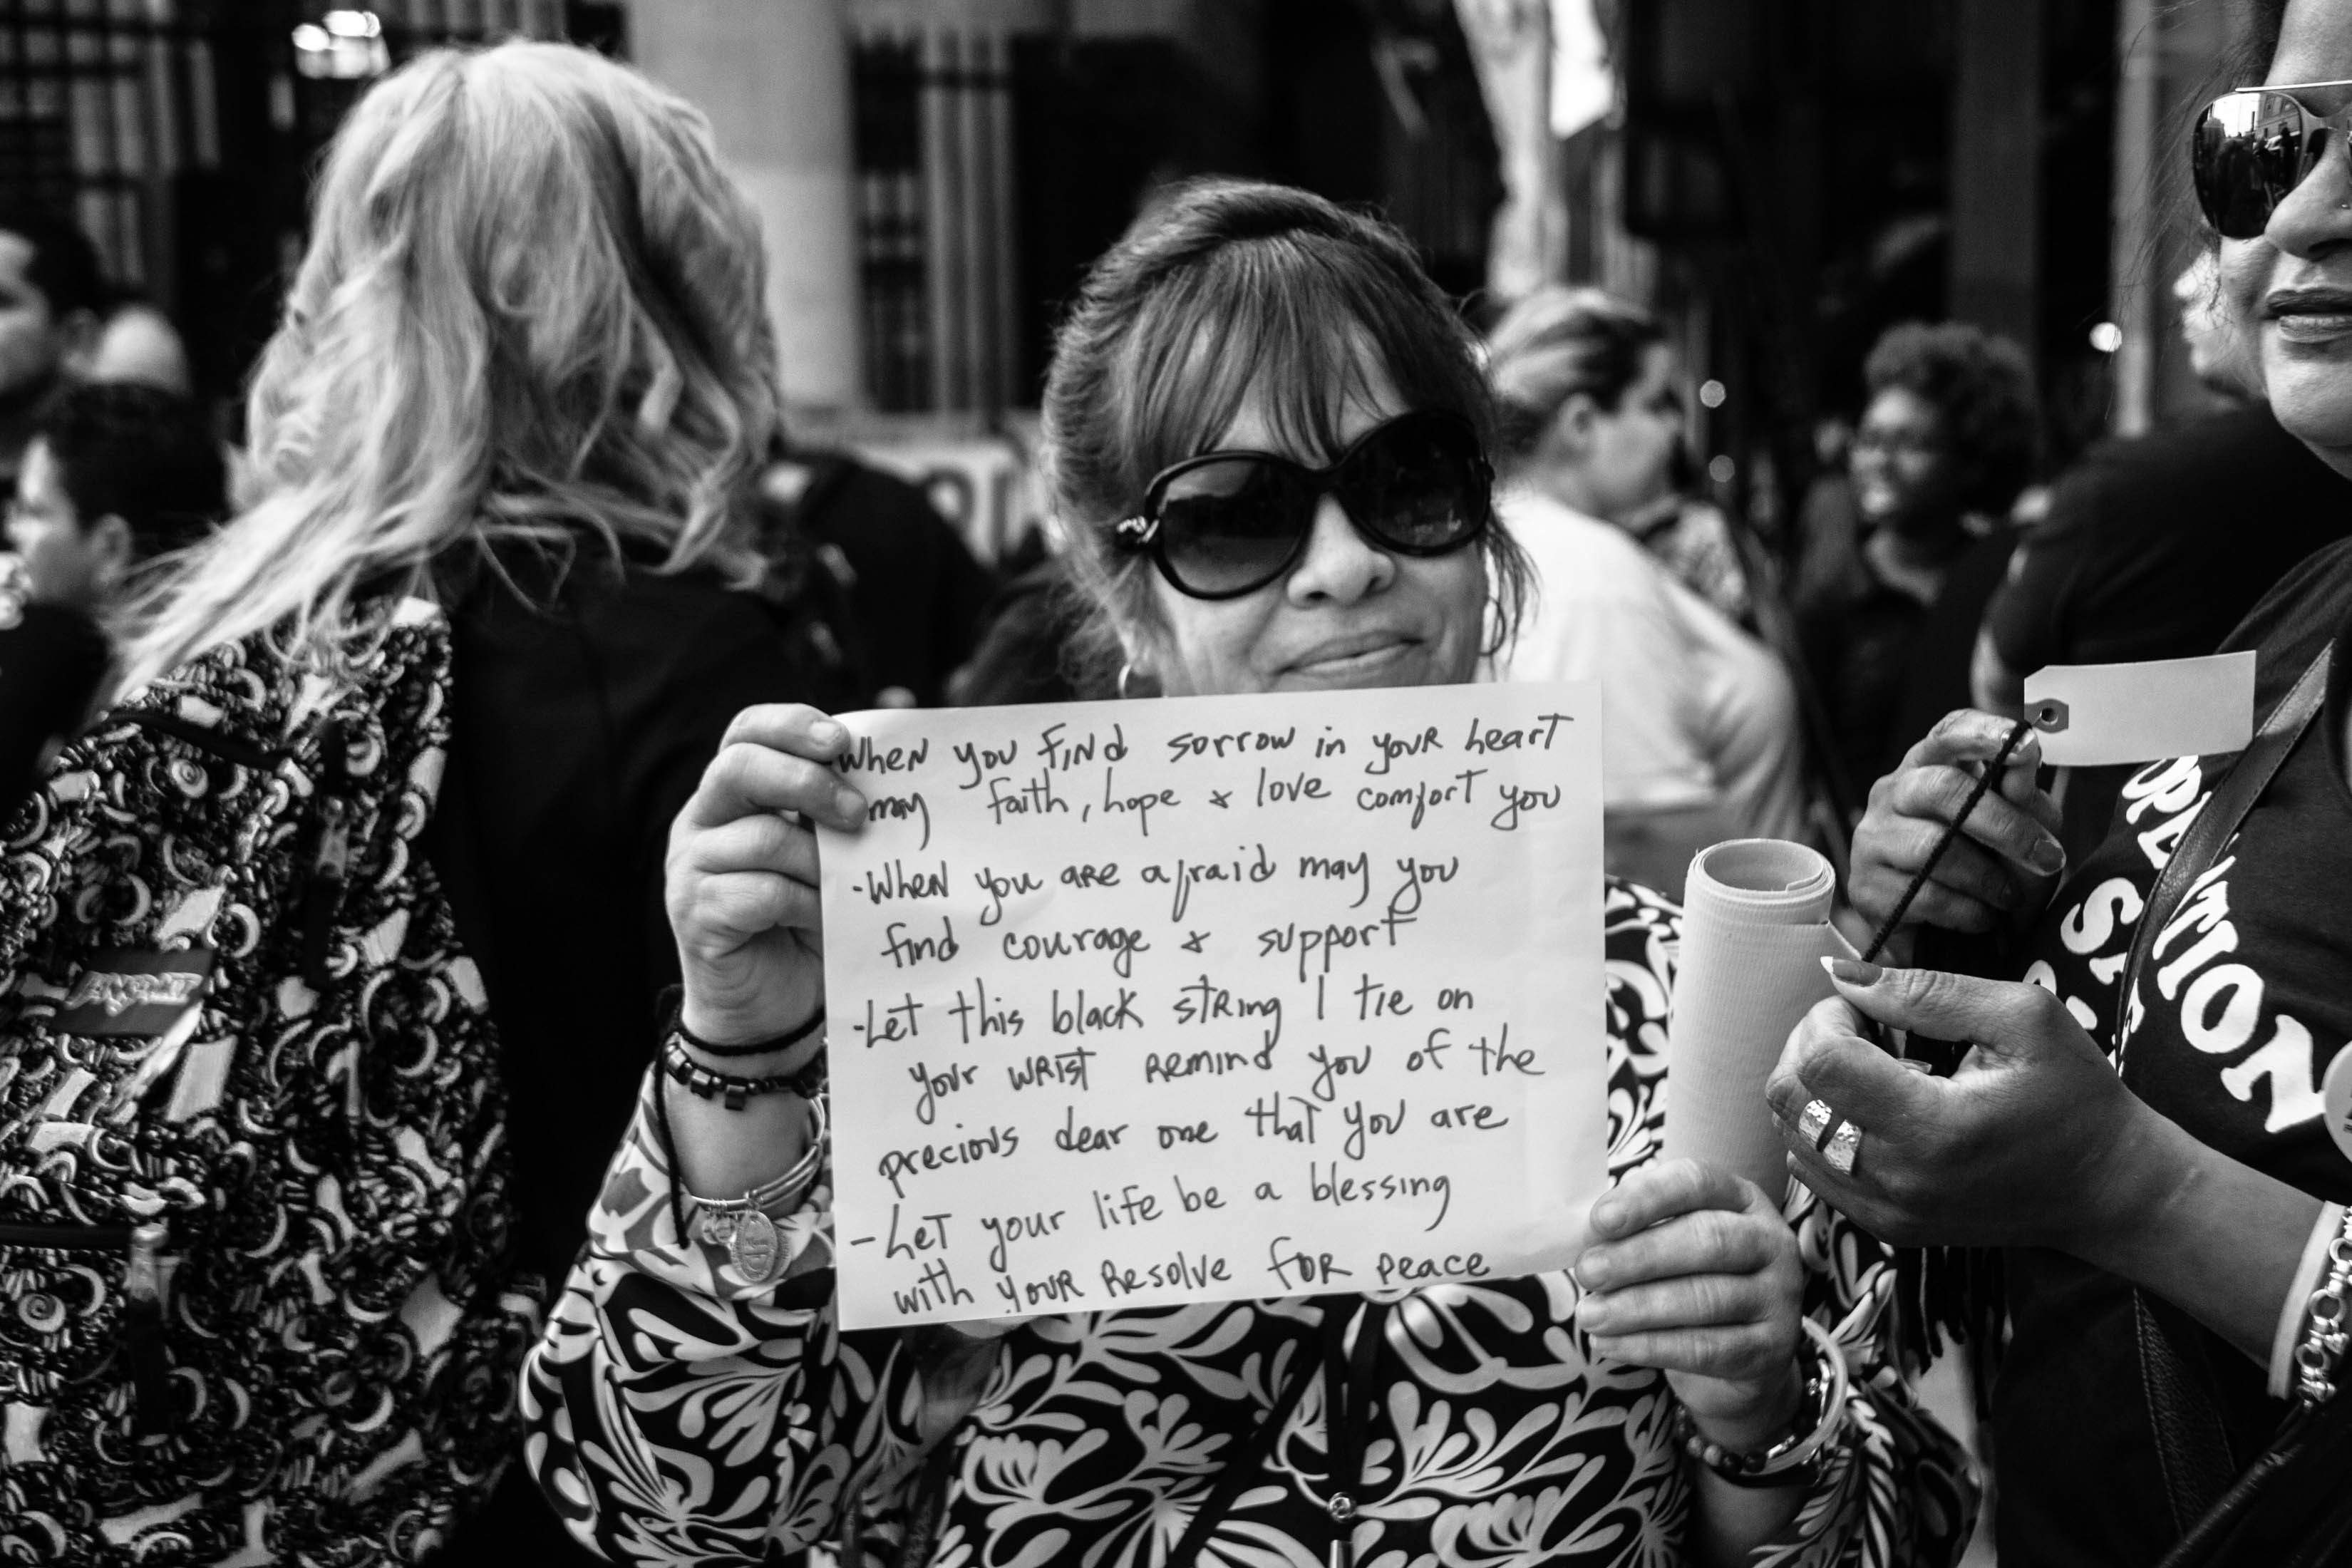 When you find sorrow in your heart
may faith, hope & love comfort you
-When you are afraid may you
find courage & support
-Let this black string I tie on
your wrist remind you of the
precious dear one that you are
-Let your life be a blessing
with your resolve for peace
OPERATION